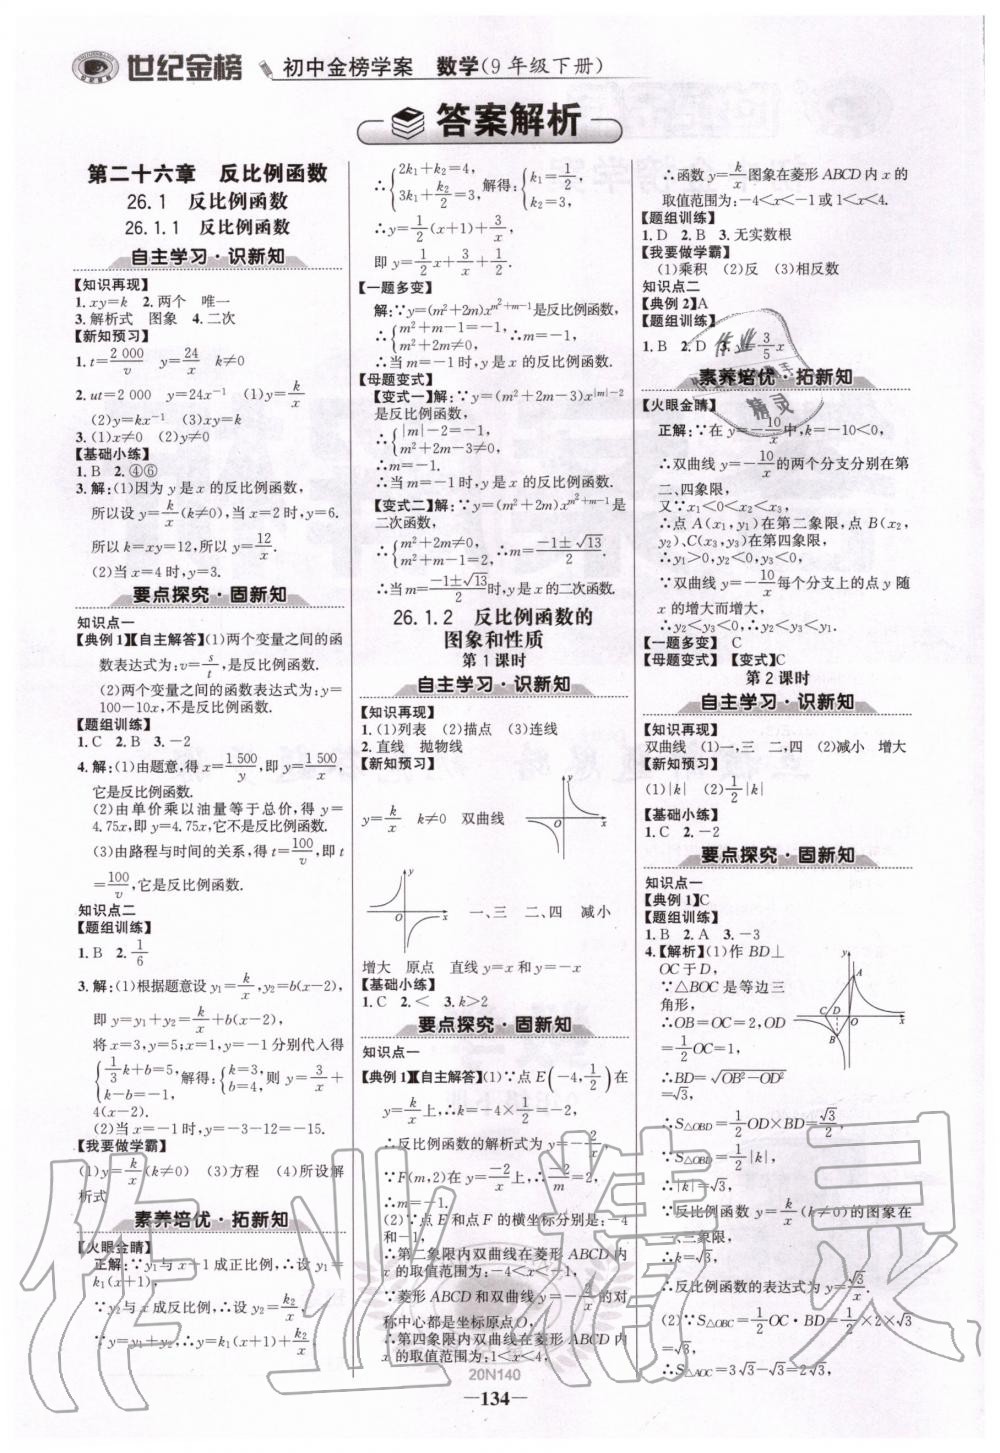 世纪金榜 初中金榜学案 数学(9年级下册)
答案解析
第二十六章 反比例函数
26.1 反比例函数
26.1.1 反比例函数
自主学习·识新知
【知识再现】
1. xy=k 2. 两个 唯一
3. 解析式 图象 4. 二次
【新知预习】
1. t=2 000/v y=24/x k≠0
2. ut=2 000 y=24x⁻¹ (1)y=k/x
(2)y=kx⁻¹ (3)xy=k
3. (1)x≠0 (2)y≠0
【基础小练】
1. B 2. ④⑥
3. 解:(1)因为y是x的反比例函数,
所以设y=k/x(k≠0),当x=2时,y=6.
所以k=xy=12,所以y=12/x.
(2)当x=4时,y=3.
要点探究·固新知
知识点一
【典例1】【自主解答】(1)两个变量之间的函
数表达式为:v=s/t,是反比例函数.
(2)两个变量之间的函数表达式为:y=
100-10x,不是反比例函数.
【题组训练】
1. C 2. B 3. -2
4. 解:(1)由题意,得x=1 500/y,即y=1 500/x,
它是反比例函数.
(2)由单价乘以油量等于总价,得y=
4.75x,即y=4.75x,它不是反比例函数.
(3)由路程与时间的关系,得t=100/v,即t
=100/v,它是反比例函数.
知识点二
【题组训练】
1. B 2. 1/6
3. 解:(1)根据题意设y₁=k/x,y₂=b(x-2),
即y=y₁+y₂=k/x+b(x-2),
将x=3,y=5;x=1,y=-1分别代入得
{1/3k+b=5, k-b=-1, 解得:{k=3, b=4, 则y=3/x+
4(x-2).
(2)当x=-1时,y=-3-12=-15.
【我要做学霸】
(1)y=k/x(k≠0) (3)方程 (4)所设解
析式
素养培优·拓新知
【火眼金睛】
正解:∵y₁与x+1成正比例,∴设y₁=
k₁(x+1),
∵y₂与x成反比例,∴设y₂=k₂/x,
∵y=y₁+y₂,∴y=k₁(x+1)+k₂/x.
∴{2k₁+k₂=4, 3k₁+k₂/2=3, 解得:{k₁=1/2, k₂=3,
∴y=1/2(x+1)+3/x,
即y=1/2x+3/x+1/2.
【一题多变】
解:∵y=(m²+2m)x^(m²+m-1)是反比例函数,
∴{m²+m-1=-1, m²+2m≠0, ∴m=-1,
∴当m=-1时,y是x的反比例函数.
【母题变式】
【变式一】解:∵y=(m²+2m-3)x^(|m|-2)
是反比例函数,
∴{|m|-2=-1, m²+2m-3≠0,
∴m=-1.
∴当m=-1时,y是x的反比例函数.
【变式二】解:∵y=(m²+2m)x^(m²+m-1)是
二次函数,
∴{m²+2m≠0, m²+m-1=2, ∴m=(-1±√13)/2
∴当m=(-1±√13)/2时,y是x的二次函数.
26.1.2 反比例函数的
图象和性质
第1课时
自主学习·识新知
【知识再现】
1. (1)列表 (2)描点 (3)连线
2. 直线 抛物线
【新知预习】
y=k/x k≠0 双曲线
y O x
y O x 一、三 二、四 减小
增大 原点 直线y=x和y=-x
【基础小练】
1. C 2. < 3. k>2
要点探究·固新知
知识点一
【典例1】【自主解答】(1)∵点E(-4,1/2)在
y=k/x上,∴k=-4×1/2=-2,
∴反比例函数的解析式为y=-2/x,
∵F(m,2)在y=-2/x上,∴-2/m=2,
∴m=-1.
(2)∵点E和点F的横坐标分别是:-4
和-1,
∴第二象限内双曲线在菱形ABCD内
x的取值范围为:-4<x<-1,
∵菱形ABCD和双曲线y=-2/x的对
称中心都是坐标原点O,
∴第四象限内双曲线在菱形ABCD内
x的取值范围为:1<x<4,
∴函数y=k/x图象在菱形ABCD内x的
取值范围为:-4<x<-1或1<x<4.
【题组训练】
1. D 2. B 3. 无实数根
【我要做学霸】
(1)乘积 (2)反 (3)相反数
知识点二
【典例2】A
【题组训练】
1. B 2. D 3. y=3/5x
素养培优·拓新知
【火眼金睛】
正解:∵在y=-10/x中,k=-10<0,
∴双曲线y=-10/x的两个分支分别在第
二、四象限,
又∵x₁<0<x₂<x₃,
∴点A(x₁,y₁)在第二象限,点B(x₂,
y₂)、C(x₃,y₃)在第四象限,
∴y₁>0,y₂<0,y₃<0,
∵双曲线y=-10/x每个分支上的点y随
x的增大而增大,
∴y₂<y₃<0,∴y₂<y₃<y₁.
【一题多变】 C
【母题变式】 【变式】C
第2课时
自主学习·识新知
【知识再现】
双曲线 (1)一,三 二,四 (2)减小 增大
【新知预习】
(1)|k| (2)1/2|k|
【基础小练】
1. C 2. -2
要点探究·固新知
知识点一
【典例1】C
【题组训练】
1. B 2. A 3. -3
4. 【解析】(1)作BD⊥
OC于D,
∵△BOC是等边三
角形,
∴OB=OC=2,OD
=1/2OC=1,
∴BD=√(OB²-OD²)
=√3,
y A C D O x B
∴S△OBD=1/2OD×BD=√3/2,
∵S△OBD=1/2|k|,
∴|k|=√3,
∵反比例函数y=k/x(k≠0)的图象在
一、三象限,
∴k=√3,
∴反比例函数的表达式为y=√3/x.
(2)∵S△OBC=1/2OC·BD=1/2×2×√3
=√3,
∴S△AOC=3√3-√3=2√3,
20N140
—134—
作业精灵
作业
精灵